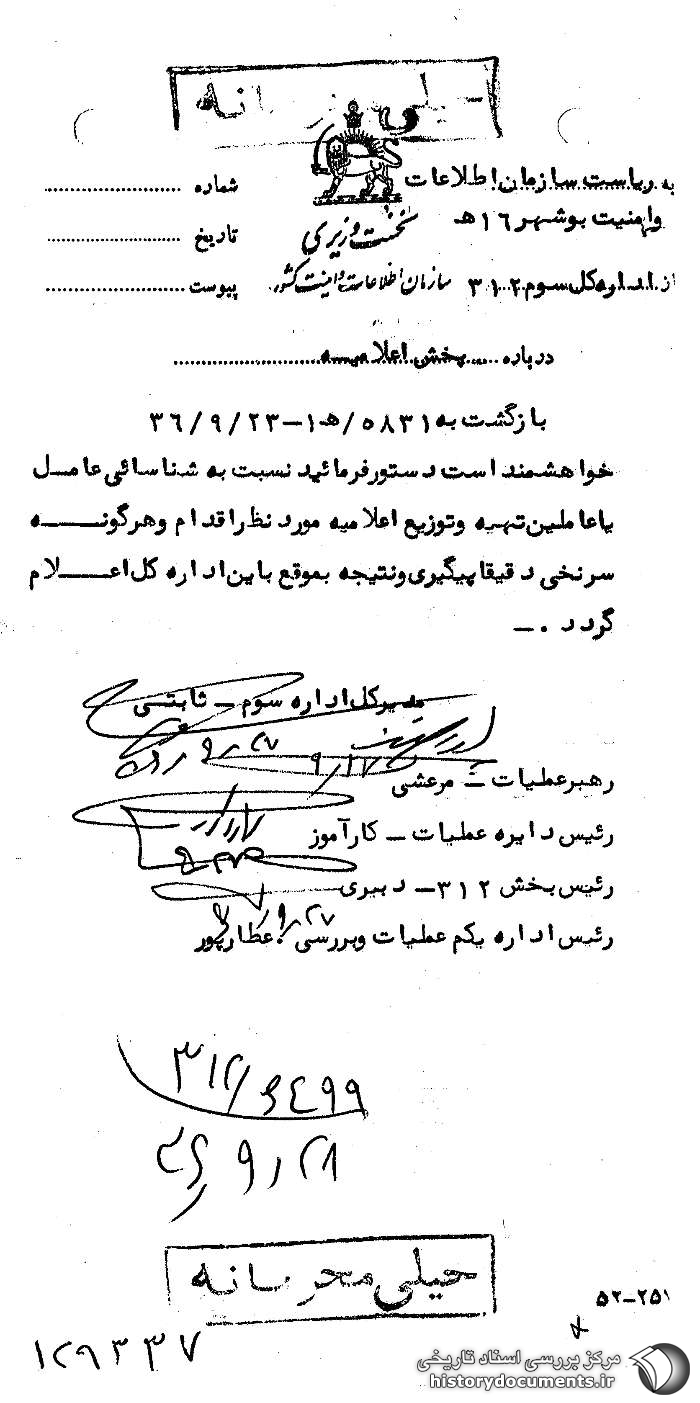 خیلی محرمانه
به ریاست سازمان اطلاعات
وامنیت بوشهر ۱۶ هـ
از اداره کل سوم ۳۱۲
نخست وزیری
سازمان اطلاعات و امنیت کشور
شماره
تاریخ
پیوست
درباره پخش اعلامیه
بازگشت به ۵۸۳۱/هـ۱-۳۶/۹/۲۳
خواهشمند است دستور فرمائید نسبت به شناسائی عامل
یا عاملین تهیه و توزیع اعلامیه مورد نظر اقدام و هرگونه
سرنخی دقیقا پیگیری و نتیجه بموقع باین اداره کل اعلام
گردد .-
مدیرکل اداره سوم - ثابتی
رهبر عملیات - مرعشی
رئیس دایره عملیات - کارآموز
رئیس بخش ۳۱۲- دبیری
رئیس اداره یکم عملیات و بررسی. عطارپور
۹/۲۷
۳۱۲/۶۴۹۹
۳۶/۹/۲۸
خیلی محرمانه
۵۲-۲۵۱
۱۲۹۳۳۷
مرکز بررسی اسناد تاریخی
historydocuments.ir